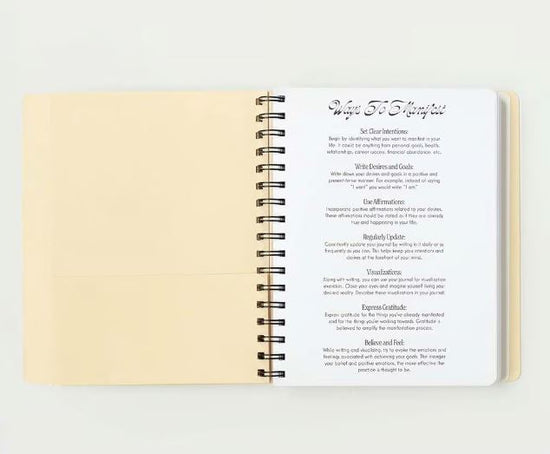 Ways To Manifest
Set Clear Intentions:
Begin by identifying what you want to manifest in your
life. It could be anything from personal goals, health,
relationships, career success, financial abundance, etc.
Write Desires and Goals:
Write down your desires and goals in a positive and
present-tense manner. For example, instead of saying
"I want" you would write "I am."
Use Affirmations:
Incorporate positive affirmations related to your desires.
These affirmations should be stated as if they are already
true and happening in your life.
Regularly Update:
Consistently update your journal by writing in it daily or as
frequently as you can. This helps keep your intentions and
desires at the forefront of your mind.
Visualizations:
Along with writing, you can use your journal for visualization
exercises. Close your eyes and imagine yourself living your
desired reality. Describe these visualizations in your journal.
Express Gratitude:
Express gratitude for the things you've already manifested
and for the things you're working towards. Gratitude is
believed to amplify the manifestation process.
Believe and Feel:
While writing and visualizing, try to evoke the emotions and
feelings associated with achieving your goals. The stronger
your belief and positive emotions, the more effective the
practice is thought to be.